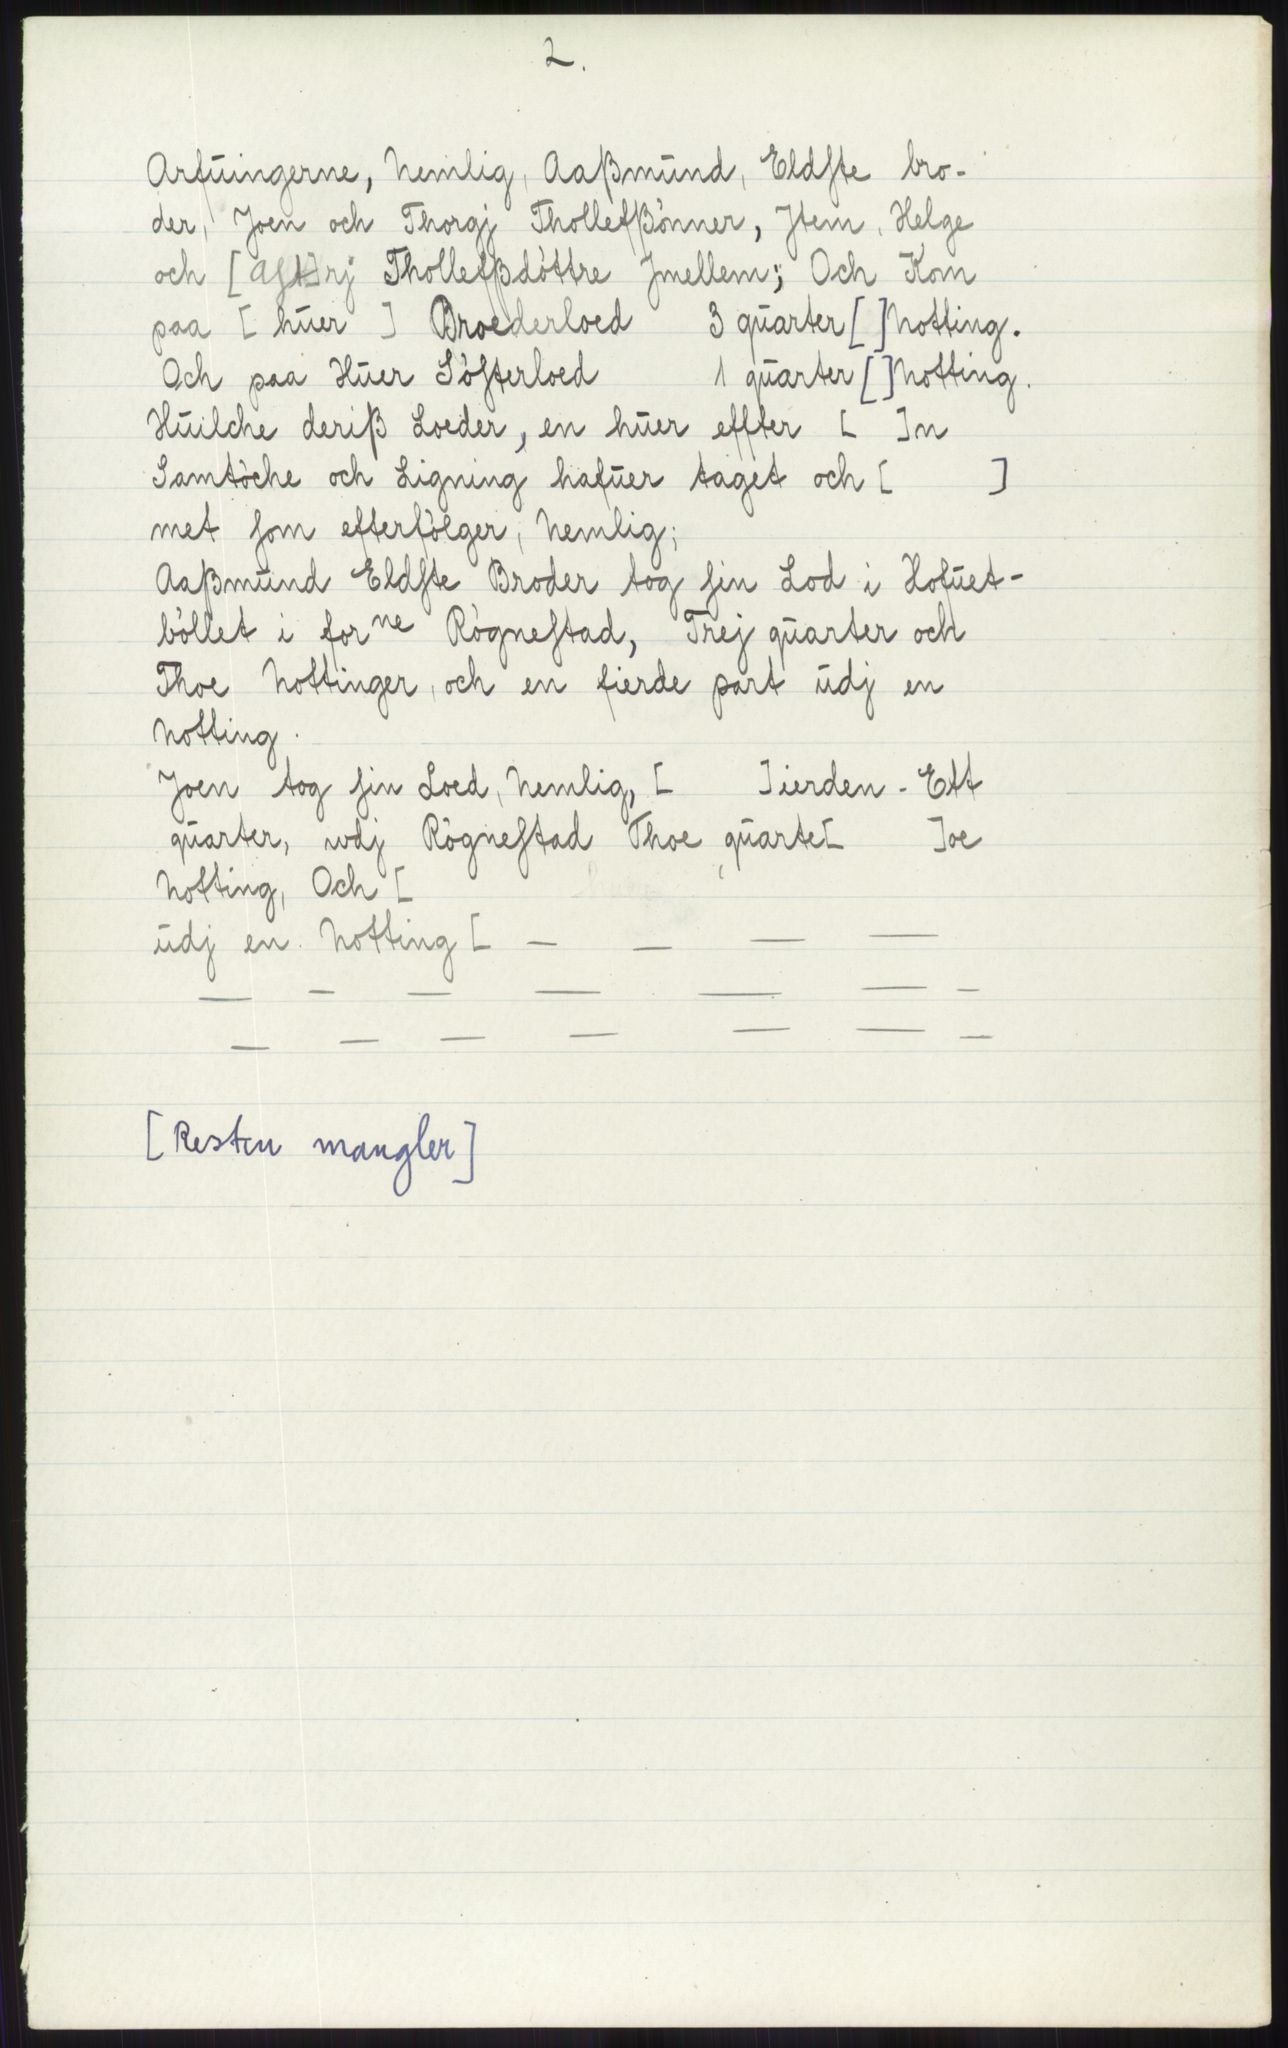 2.
Arfuingerne, Nemlig, Aaßmund, Eldste bro-
der, Joen och Thorgj Thollefßönner, Jtem, Helge
och [Ast]rj Thollefßdöttre Jmellem; Och Kom
paa [ huer ] Broederloed 3 quarter [ ] Notting.
Och paa Huer Sösterloed 1 quarter [ ] Notting.
Huilche deriß Loeder, en huer effter [ ]n
Samtöche och Ligning hafuer taget och [ ]
met som efterfölger, Nemlig;
Aaßmund Eldste Broder tog sin Lod i Hofuet-
böllet i forne Rögnestad, Trej quarter och
Thoe Nottinger, och en fierde part udj en
Notting.
Joen tog sin Loed, Nemlig, [ ]ierden - Ett
quarter, wdj Rögnestad Thoe quarte[ ]oe
Notting, Och [
udj en Notting [ — — — —
— — — — — — —
— — — — — — —
[Resten mangler]